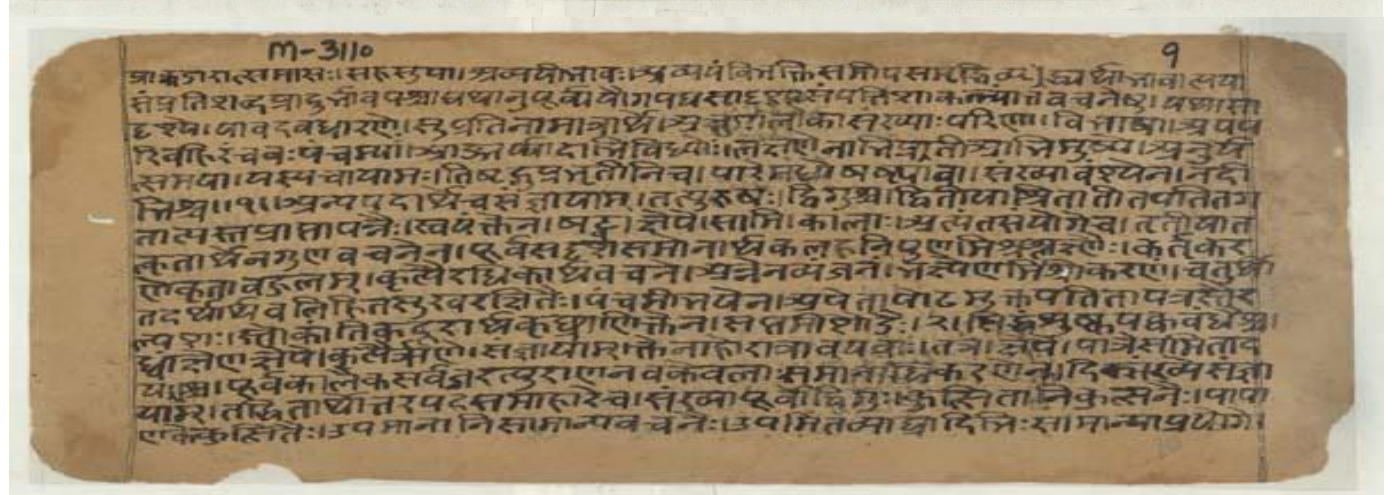 M-3110 9
प्राक्कडारात्समासः। सहसुपा। अव्ययीभावः। अव्ययं विभक्तिसमीपसमृद्धिव्यृद्ध्यर्थाभावात्यया
संप्रतिशब्दप्रादुर्भावपश्चाद्यथानुपूर्व्ययौगपद्यसादृश्यसंपत्तिसाकल्यांतवचनेषु। यथासा
दृश्ये। यावदवधारणे। सुप्प्रतिनामात्रार्थे। अक्षशलाकासंख्याः परिणा। विभाषा। अपप
रिबहिरंचवः पंचम्या। आङ्मर्यादाभिविध्योः। लक्षणेनाभिप्रतीआभिमुख्ये। अनुर्य
त्समया। यस्यचायामः। तिष्ठद्गुप्रभृतीनिच। पारेमध्येषष्ठ्यावा। संख्यावंश्येन। नदी
भिश्च॥१॥ अन्यपदार्थेचसंज्ञायाम्। तत्पुरुषः। द्विगुश्च। द्वितीयाश्रितातीतपतितग
तात्यस्तप्राप्तापन्नैः। स्वयंक्तेन। खट्वाक्षेपे। सामि। कालाः। अत्यंतसंयोगेच। तृतीयात
त्कृतार्थेनगुणवचनेन। पूर्वसदृशसमोनार्थकलहनिपुणमिश्रश्लक्ष्णैः। कर्तृकर
णेकृताबहुलम्। कृत्यैरधिकार्थवचने। अन्नेनव्यंजनं। भक्ष्येणमिश्रीकरणं। चतुर्थी
तदर्थार्थबलिहितसुखरक्षितैः। पंचमीभयेन। अपेतापोढमुक्तपतितापत्रस्तैर
ल्पशः। स्तोकांतिकदूरार्थकृच्छ्राणिक्तेन। सप्तमीशौंडैः।२। सिद्धशुष्कपक्वबंधैश्च।
ध्वांक्षेणक्षेपे। कृत्यैर्ऋणे। संज्ञायाम्। क्तेनाहोरात्रावयवाः। तत्र। क्षेपे। पात्रेसमिताद
यश्च। पूर्वकालैकसर्वजरत्पुराणनवकेवलाः समानाधिकरणेन। दिक्संख्येसंज्ञा
याम्। तद्धितार्थोत्तरपदसमाहारेच। संख्यापूर्वोद्विगुः। कुत्सितानिकुत्सनैः। पापा
णकेकुत्सितैः। उपमानानिसामान्यवचनैः। उपमितंव्याघ्रादिभिः सामान्याप्रयोगे।